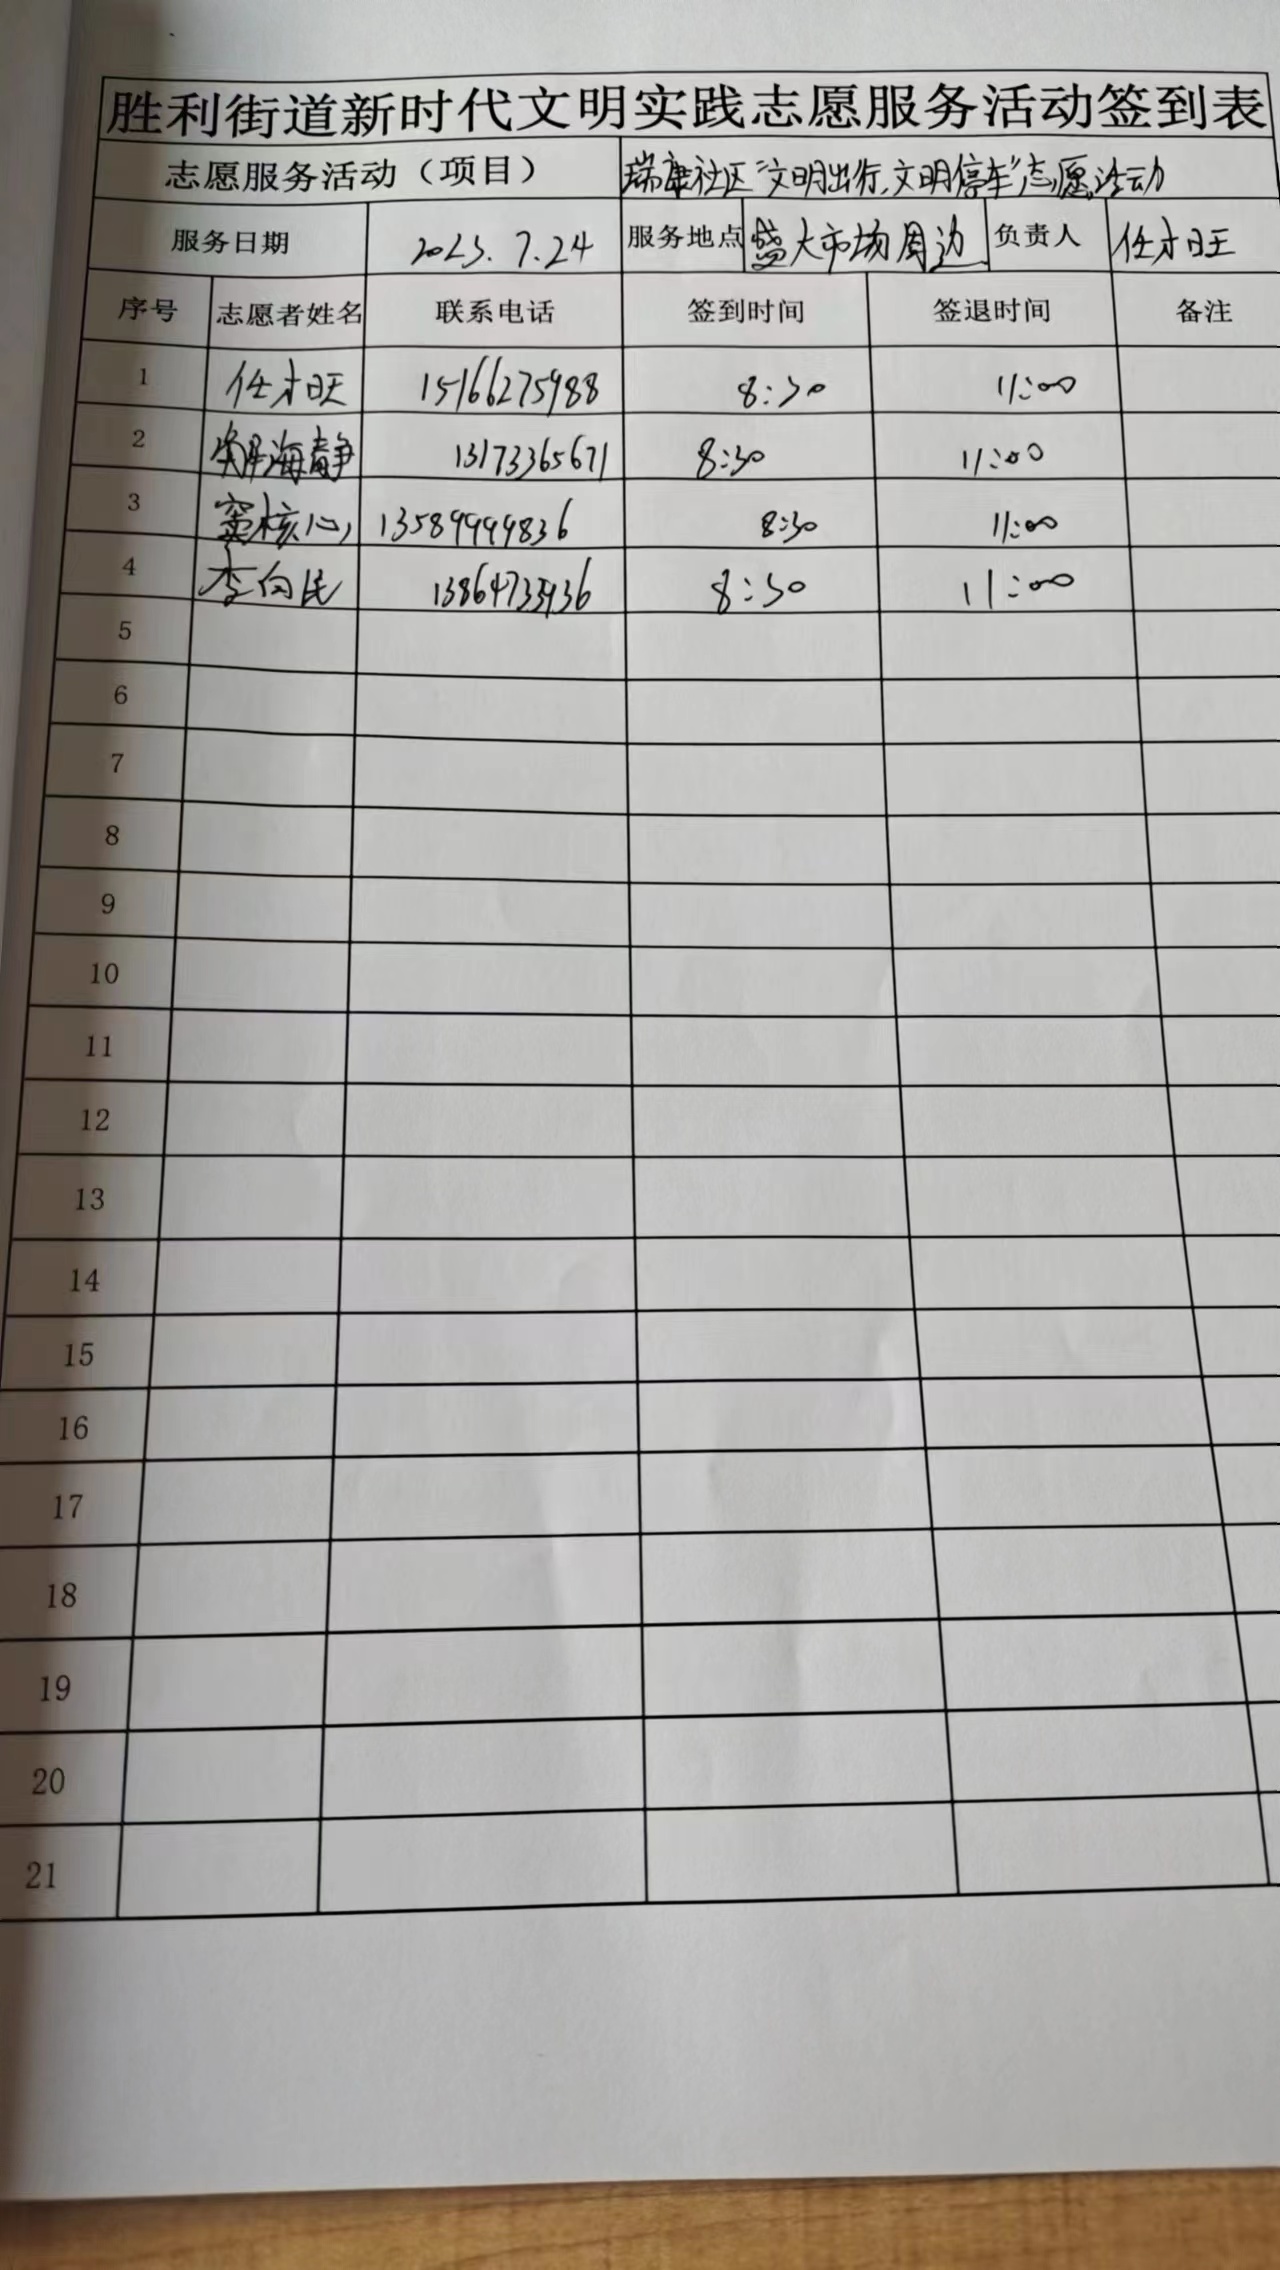 胜利街道新时代文明实践志愿服务活动签到表
志愿服务活动（项目） 瑞康社区“文明出行，文明停车”志愿活动
服务日期 2023.7.24 服务地点 盛大市场周边 负责人 任才旺
序号 志愿者姓名 联系电话 签到时间 签退时间 备注
1 任才旺 15166275988 8:30 11:00
2 海静 13173365671 8:30 11:00
3 窦核心 13589999836 8:30 11:00
4 李向民 13864735936 8:30 11:00
5
6
7
8
9
10
11
12
13
14
15
16
17
18
19
20
21